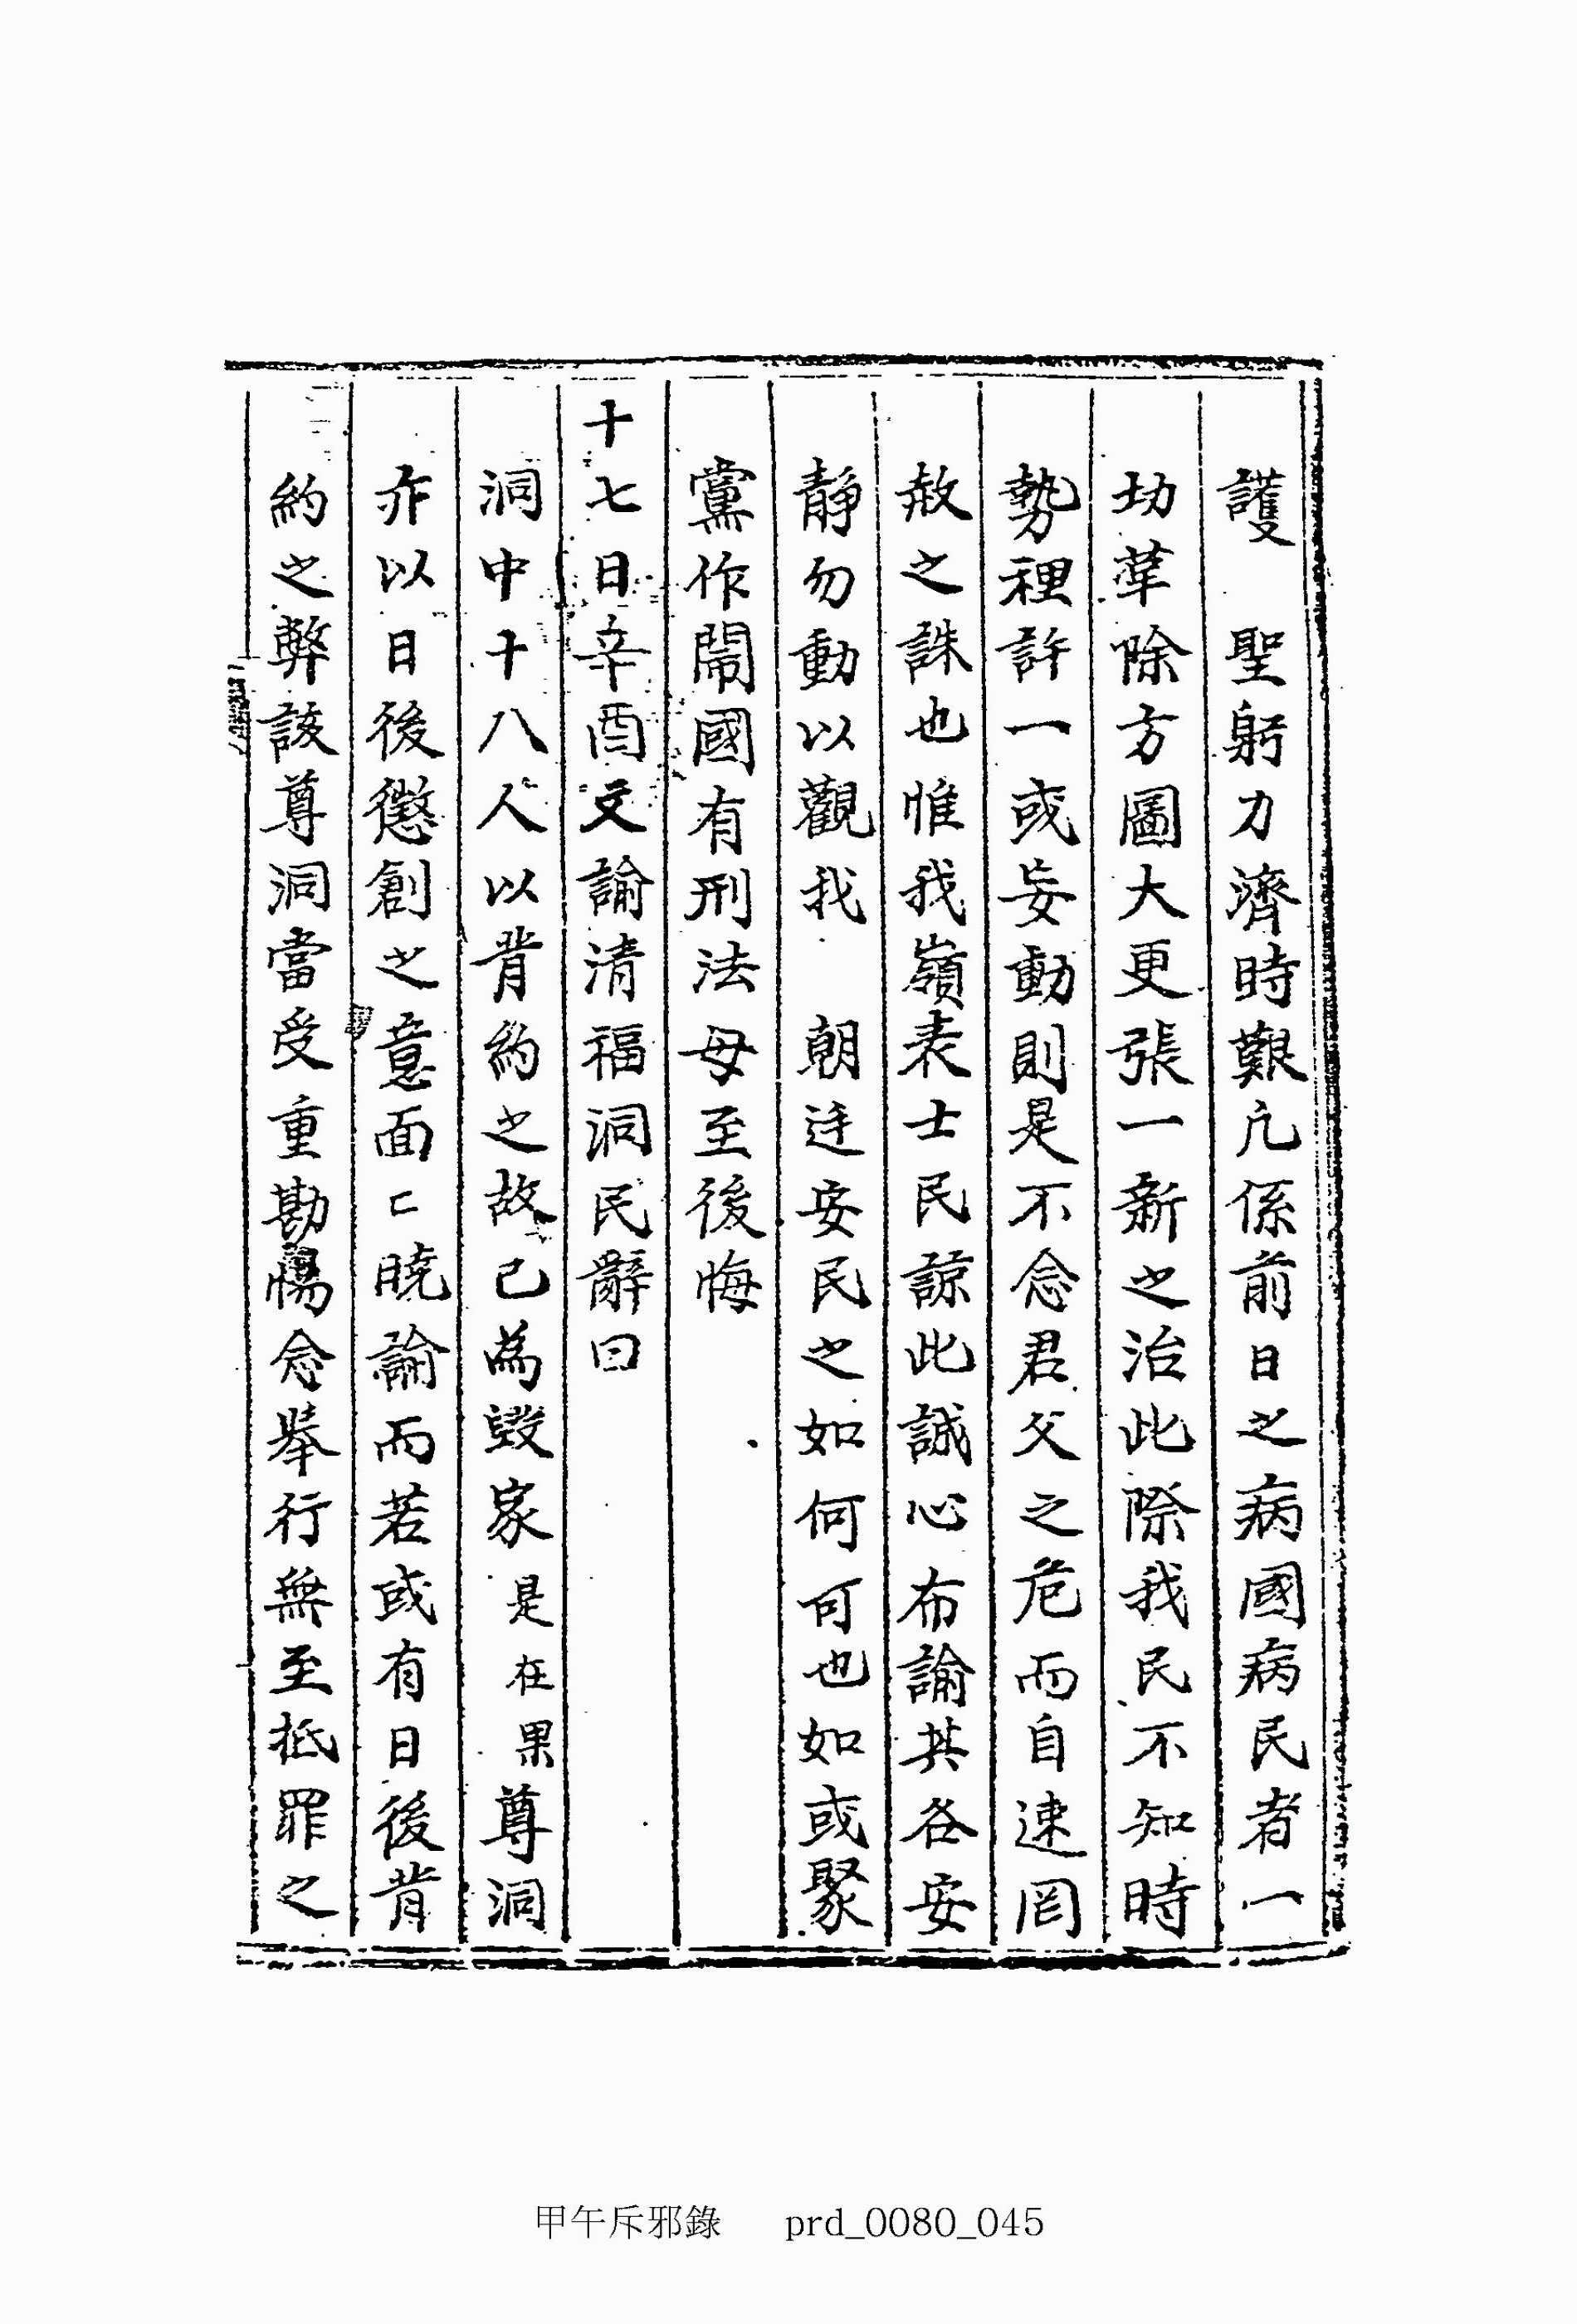 護　聖躬力濟時艱凡係前日之病國病民者一
切革除方圖大更張一新之治此際我民不知時
勢裡許一或妄動則是不念君父之危而自速罔
赦之誅也惟我嶺表士民諒此誠心布諭其各安
靜勿動以觀我　朝廷安民之如何可也如或聚
黨作鬧國有刑法毋至後悔
十七日辛酉文諭清福洞民辭曰
洞中十八人以背約之故已為毀家是在果尊洞
亦以日後懲創之意面〻曉諭而若或有日後背
約之弊該尊洞當受重勘惕念擧行無至抵罪之
甲午斥邪錄　prd_0080_045